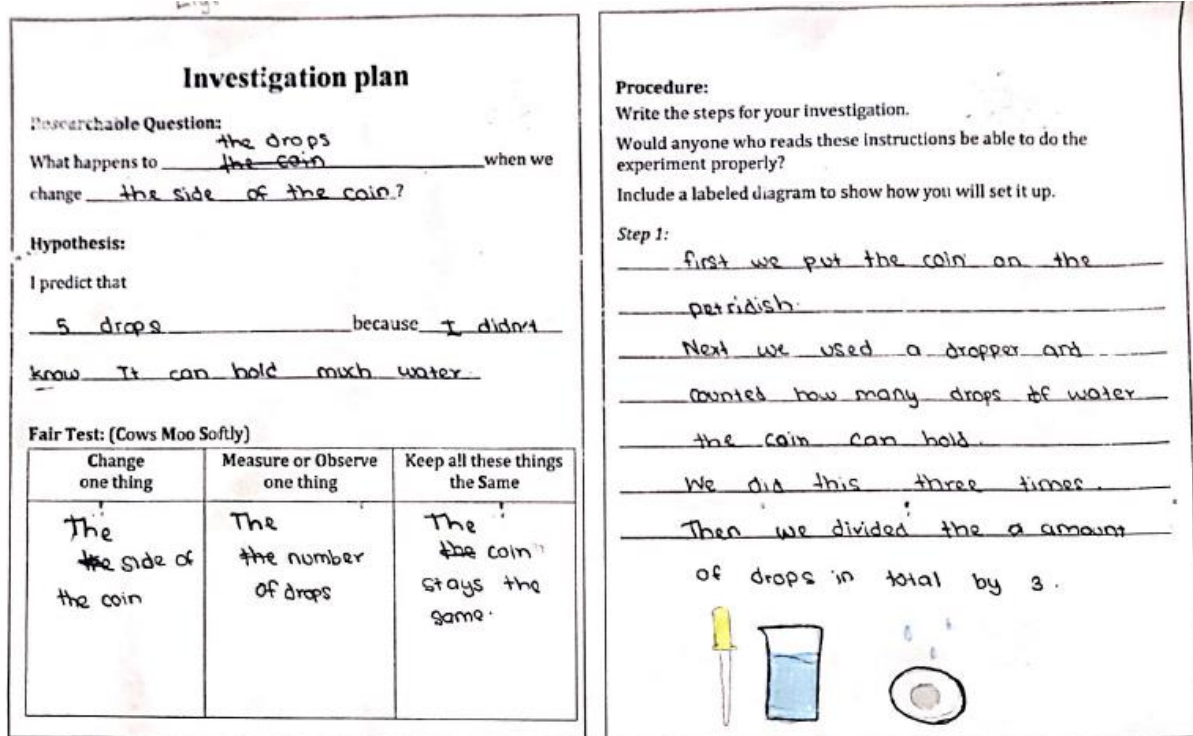 Investigation plan
Researchable Question:
the drops
What happens to the coin when we
change the side of the coin.?
Hypothesis:
I predict that
5 drops because I didn't
know It can hold much water.
Fair Test: (Cows Moo Softly)
Change
one thing
Measure or Observe
one thing
Keep all these things
the Same
The
the side of
the coin
The
the number
of drops
The
the coin
stays the
same.
Procedure:
Write the steps for your investigation.
Would anyone who reads these instructions be able to do the
experiment properly?
Include a labeled diagram to show how you will set it up.
Step 1:
first we put the coin on the
petridish.
Next we used a dropper and
counted how many drops of water
the coin can hold.
We did this three times.
Then we divided the a amount
of drops in total by 3.